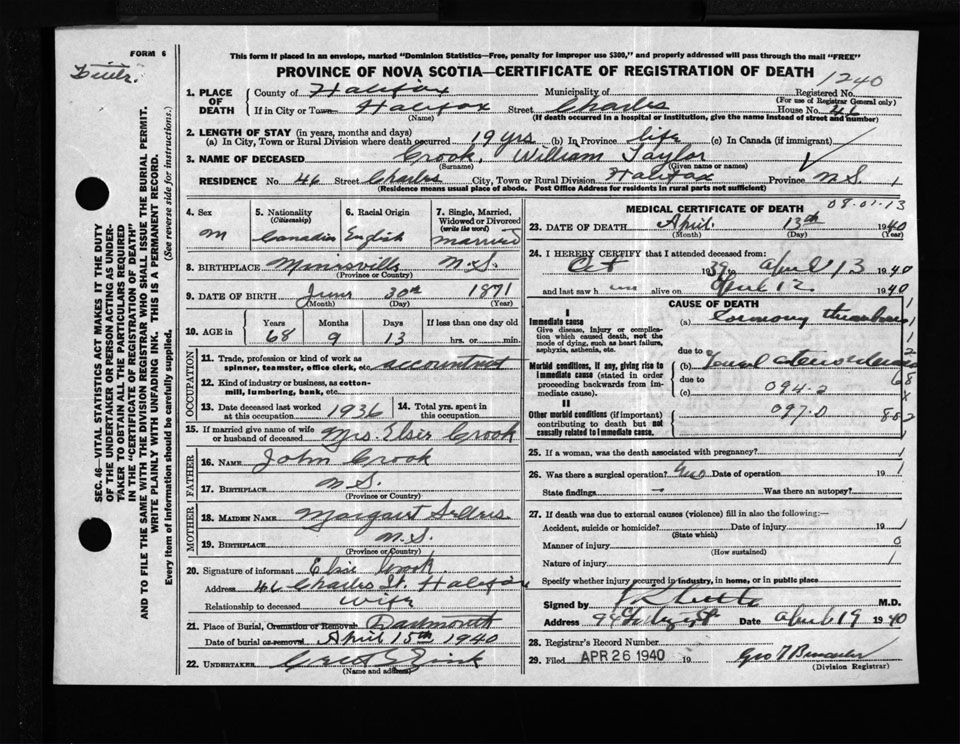 FORM 6
This form if placed in an envelope, marked "Dominion Statistics—Free, penalty for improper use $300," and properly addressed will pass through the mail "FREE"
PROVINCE OF NOVA SCOTIA—CERTIFICATE OF REGISTRATION OF DEATH
1240
SEC. 46—VITAL STATISTICS ACT MAKES IT THE DUTY
OF THE UNDERTAKER OR PERSON ACTING AS UNDER-
TAKER TO OBTAIN ALL THE PARTICULARS REQUIRED
IN THE "CERTIFICATE OF REGISTRATION OF DEATH"
AND TO FILE THE SAME WITH THE DIVISION REGISTRAR WHO SHALL ISSUE THE BURIAL PERMIT.
WRITE PLAINLY WITH UNFADING INK. THIS IS A PERMANENT RECORD.
Every item of information should be carefully supplied. (See reverse side for instructions.)
1. PLACE OF DEATH
County of Halifax Municipality of Registered No.
(For use of Registrar General only)
If in City or Town Halifax Street Charles House No. 46
(Name) (If death occurred in a hospital or institution, give the name instead of street and number)
2. LENGTH OF STAY (in years, months and days)
(a) In City, Town or Rural Division where death occurred 19 yrs (b) In Province life (c) In Canada (if immigrant)
3. NAME OF DECEASED Crook, William Tayler
(Surname) (Given name or names)
RESIDENCE No. 46 Street Charles City, Town or Rural Division Halifax Province N.S. 1
(Residence means usual place of abode. Post Office Address for residents in rural parts not sufficient)
08-01-13
4. Sex 5. Nationality (Citizenship) 6. Racial Origin 7. Single, Married, Widowed or Divorced (write the word)
M Canadian English Married
8. BIRTHPLACE N.S.
(Province or Country)
9. DATE OF BIRTH June 30th 1871
(Month) (Day) (Year)
10. AGE in Years Months Days If less than one day old
68 9 13 hrs. or min.
OCCUPATION
11. Trade, profession or kind of work as spinner, teamster, office clerk, etc. accountant
12. Kind of industry or business, as cotton-mill, lumbering, bank, etc.
13. Date deceased last worked at this occupation 1936 14. Total yrs. spent in this occupation
15. If married give name of wife or husband of deceased Mrs. Elsie Crook
FATHER
16. NAME John Crook
17. BIRTHPLACE N.S.
(Province or Country)
MOTHER
18. MAIDEN NAME Margaret
19. BIRTHPLACE N.S.
(Province or Country)
20. Signature of informant Elsie Crook
Address 46 Charles St. Halifax
Relationship to deceased Wife
21. Place of Burial, Cremation or Removal Dartmouth
Date of burial or removal April 15th 1940
22. UNDERTAKER
(Name and address)
MEDICAL CERTIFICATE OF DEATH
23. DATE OF DEATH April 13th 1940
(Month) (Day) (Year)
24. I HEREBY CERTIFY that I attended deceased from:
Oct 1939 to April 13 1940
and last saw h alive on April 12 1940
CAUSE OF DEATH
I
Immediate cause (a)
Give disease, injury or complication which caused death, not the mode of dying, such as heart failure, asphyxia, asthenia, etc.
due to
Morbid conditions, if any, giving rise to immediate cause (stated in order proceeding backwards from immediate cause). (b)
due to
(c) 094-2
II
Other morbid conditions (if important) contributing to death but not causally related to immediate cause. 097.0
25. If a woman, was the death associated with pregnancy? 1
26. Was there a surgical operation? Date of operation 19 1
State findings — Was there an autopsy?
27. If death was due to external causes (violence) fill in also the following:—
Accident, suicide or homicide? Date of injury 19
(State which)
Manner of injury 0
(How sustained)
Nature of injury 1
Specify whether injury occurred in industry, in home, or in public place
Signed by M.D.
Address Date April 19 1940
28. Registrar's Record Number
29. Filed APR 26 1940 19
(Division Registrar)